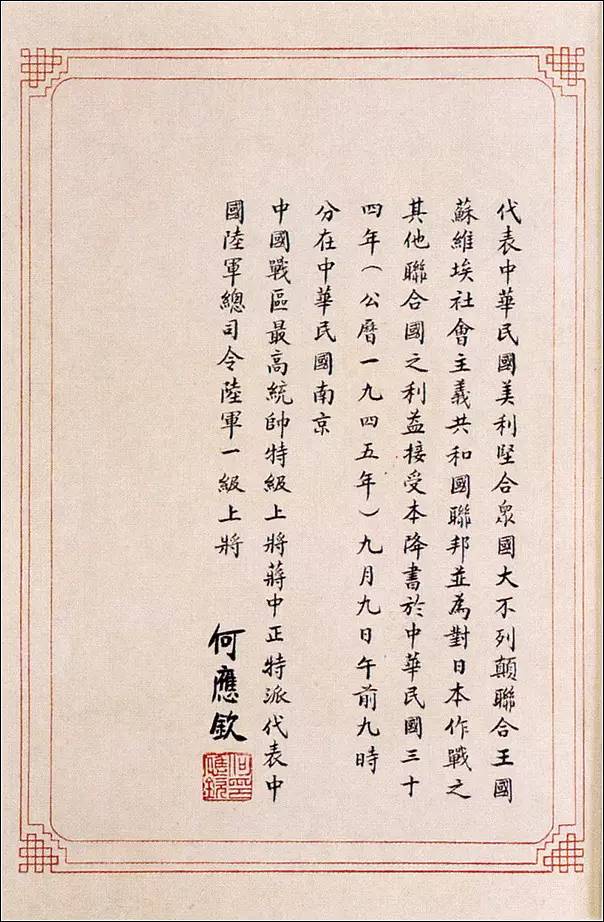 代表中華民國美利堅合衆國大不列顛聯合王國
蘇維埃社會主義共和國聯邦並為對日本作戰之
其他聯合國之利益接受本降書於中華民國三十
四年(公曆一九四五年)九月九日午前九時
分在中華民國南京
中國戰區最高統帥特級上將蔣中正特派代表中
國陸軍總司令陸軍一級上將
何應欽
何應欽